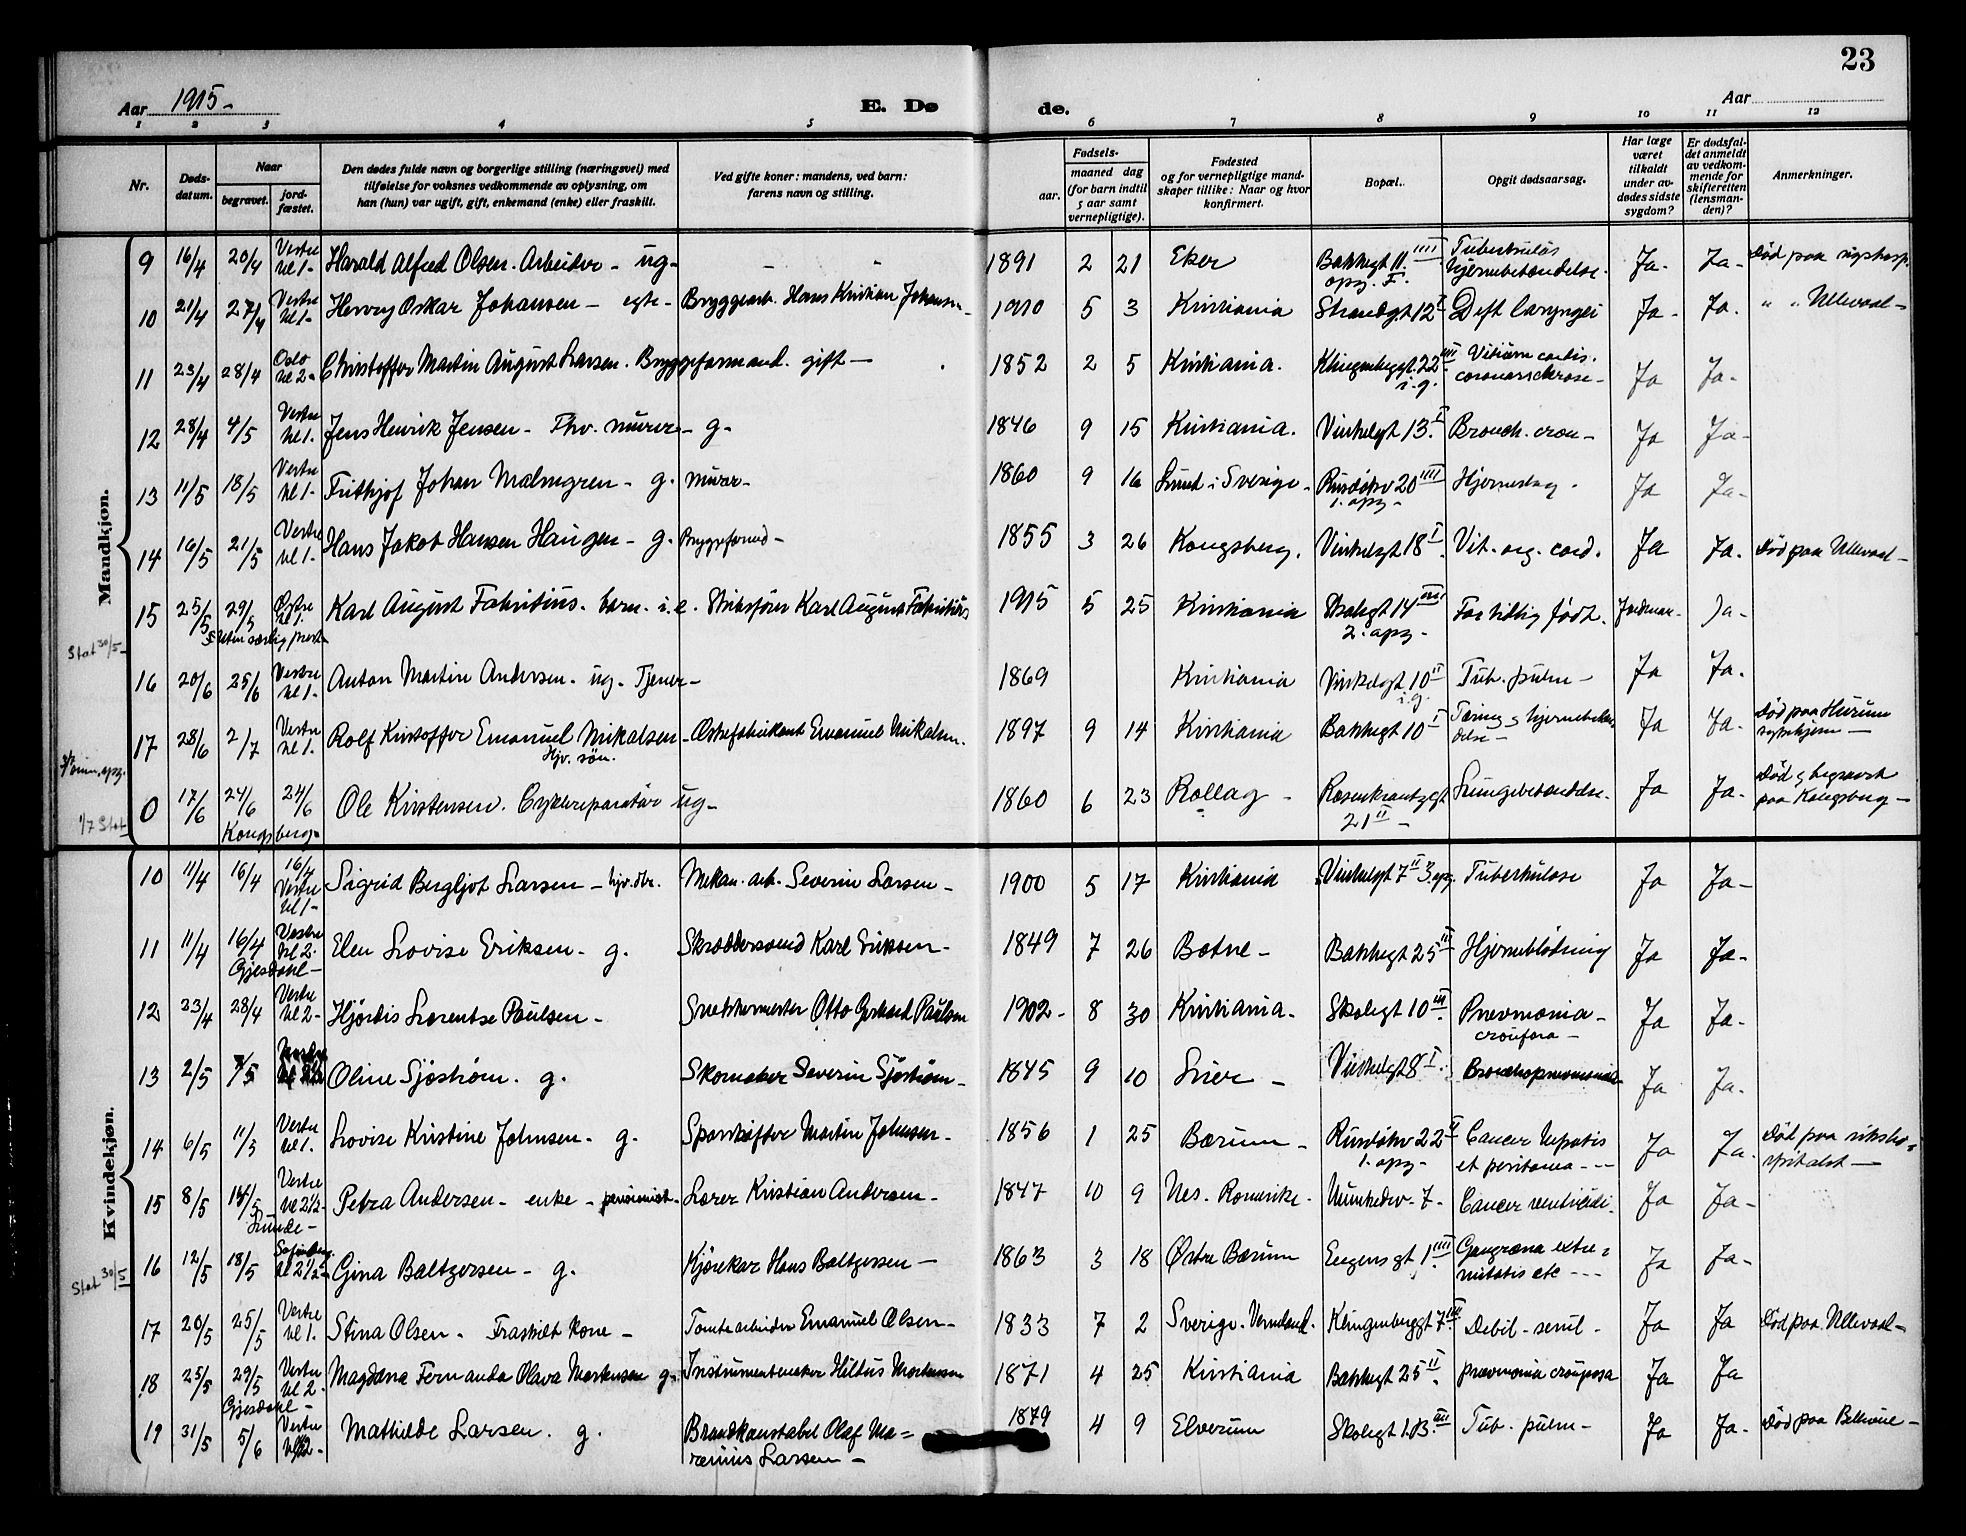 23
Aar 1915 –
E. Dø de.
Aar
1 2 3 4 5 6 7 8 9 10 11 12
Nr.
Døds-datum.
Naar
begravet.
jord-fæstet.
Den dødes fulde navn og borgerlige stilling (næringsvei) med
tilføielse for voksnes vedkommende av oplysning, om
han (hun) var ugift, gift, enkemand (enke) eller fraskilt.
Ved gifte koner: mandens, ved barn:
farens navn og stilling.
Fødsels-
aar. maaned dag
(for barn indtil
5 aar samt
vernepligtige).
Fødested
og for vernepligtige mand-
skaper tillike: Naar og hvor
konfirmert.
Bopæl.
Opgit dødsaarsag.
Har læge
været
tilkaldt
under av-
dødes sidste
sygdom?
Er dødsfal-
det anmeldt
av vedkom-
mende for
skifteretten
(lensman-
den)?
Anmerkninger.
Mandkjøn.
9 16/4 20/4 Vestre kl 1- Harald Alfred Olsen. Arbeider – ug – 1891 2 21 Eker Bakkegt 11 IIII opg. I. Tuberkuløs hjernebetændelse. Ja. Ja – Død paa rigshosp.
10 21/4 27/4 Vestre kl 1- Henry Oskar Johansen – egte – Bryggearb. Hans Kristian Johansen – 1910 5 3 Kristiania Strandgt 12 I Dift laryngei Ja – Ja. " " Ullevaal –
11 23/4 28/4 Oslo kl 2- Christoffer Martin August Larsen. Bryggeformand. gift – 1852 2 5 Kristiania. Klingenbggt. 22 IIII i.g. Vitium cordis. coronarsclerose – Ja Ja –
12 28/4 4/5 Vestre kl 1. Jens Henrik Jensen – Fhv. murer – g – 1846 9 15 Kristiania. Vinkelgt 13. I Bronch. cron – Ja Ja –
13 11/5 18/5 Vestre kl 1- Frithjof Johan Malmgren – g. Murer – 1860 9 16 Lund i Sverige – Ruseløkv 20 IIII 1. opg – Hjerneslag – Ja Ja –
14 16/5 21/5 Vestre kl 1. Hans Jakob Hansen Haugen – g. Bryggeformd – 1855 3 26 Kongsberg. Vinkelgt 18 I. Vit. org. cord. Ja Ja. Død paa Ullevaal –
15 25/5 29/5 Østre kl 1. Karl August Fabritius. barn. i. e. Striksfører Karl August Fabritius 1915 5 25 Kristiania Skolegt 14 IIII 2. opg – For tidlig født. Jordmor – Ja –
Stat 30/5 –
16 20/6 25/6 Vestre kl 1- Anton Martin Andersen. ug. Tjener – 1869 Kristiania Vinkelgt 10 II i.g. Tub. pulm – Ja Ja.
17 28/6 2/7 Vestre kl 1. Rolf Kristoffer Emanuel Mikalsen – Hjv. søn. Emanuel Mikalsen. 1897 9 14 Kristiania Bakkegt 10 I Tæring og hjernebetændelse – Ja Ja. Død paa Hurum sykehjem –
1/7 Stat
0 17/6 24/6 24/6 Kongsberg Ole Kristensen. Cyklereparatør ug – 1860 6 23 Rollag – Rosenkrantzgt 21 II – Lungebetændelse. Ja Ja. Død og begravet paa Kongsberg –
Kvindekjøn.
10 11/4 16/4 16/4 Vestre kl 1- Sigrid Bergljot Larsen – hjv. dtr. Mekan. arb. Severin Larsen – 1900 5 17 Kristiania Vinkelgt 7 II 3. opg. Tuberkulose Ja Ja –
11 11/4 16/4 Vestre kl 2. Gjesdahl – Elen Lovise Eriksen – g. Skræddersvend Karl Eriksen – 1849 7 26 Botne – Bakkegt 25 III Hjerneblødning Ja Ja –
12 23/4 28/4 Vestre kl 2- Hjørdis Lorentse Paulsen – Snekkermester Otto Gerhard Paulsen 1902 – 8 30 Kristiania. Skolegt 10 III. Pnevmonia – croupora – Ja Ja.
13 2/5 7/5 Oline Sjøstrøm. g. Skomaker Severin Sjøstrøm – 1845 9 10 Lier – Vinkelgt 8 I. Bronchopneumonia Ja Ja.
14 6/5 11/5 Vestre kl 1. Lovise Kristine Johnsen – g. Martin Johnsen – 1856 1 25 Bærum – Ruseløkv 22 II 1. opg – Cancer hepatis et peritonia – – – Ja Ja. Død paa rikshospitalet –
15 8/5 14/5 Vestre kl 2 1/2 – Lunde – Petra Andersen – enke – pensionist – Lærer Kristian Andersen – 1847 10 9 Nes. Romerike. Munkedv – 7 – Cancer ventriculi. Ja Ja –
Stat 30/5
16 12/5 18/5 Sofienberg. kl 2 1/2 Gina Baltzersen – g. Kjørekar Hans Baltzersen – 1863 3 18 Østre Bærum Eugens gt 1. IIII Gangræna extremitatis etc – – – Ja Ja –
17 20/5 25/5 Vestre kl 1. Stina Olsen – Fraskilt kone – Tomtearbeider Emanuel Olsen – 1833 7 2 Sverige. Vermland. Klingenberggt 7 III. Debil. senil – Ja Ja Død paa Ullevaal –
18 25/5 29/5 Vestre kl 2. Gjesdahl – Magdana Fernanda Olava Mortensen g – Instrumentmaker Hildus Mortensen 1871 4 25 Kristiania Bakkegt 25 II. pnevmonia crouposa Ja Ja
19 31/5 5/6 Vestre Mathilde Larsen. g. Brandkonstabel Olaf Marenius Larsen – 1879 4 9 Elverum Skolegt 13. III Tub. pulm – Ja Ja – Død paa Bellevue –